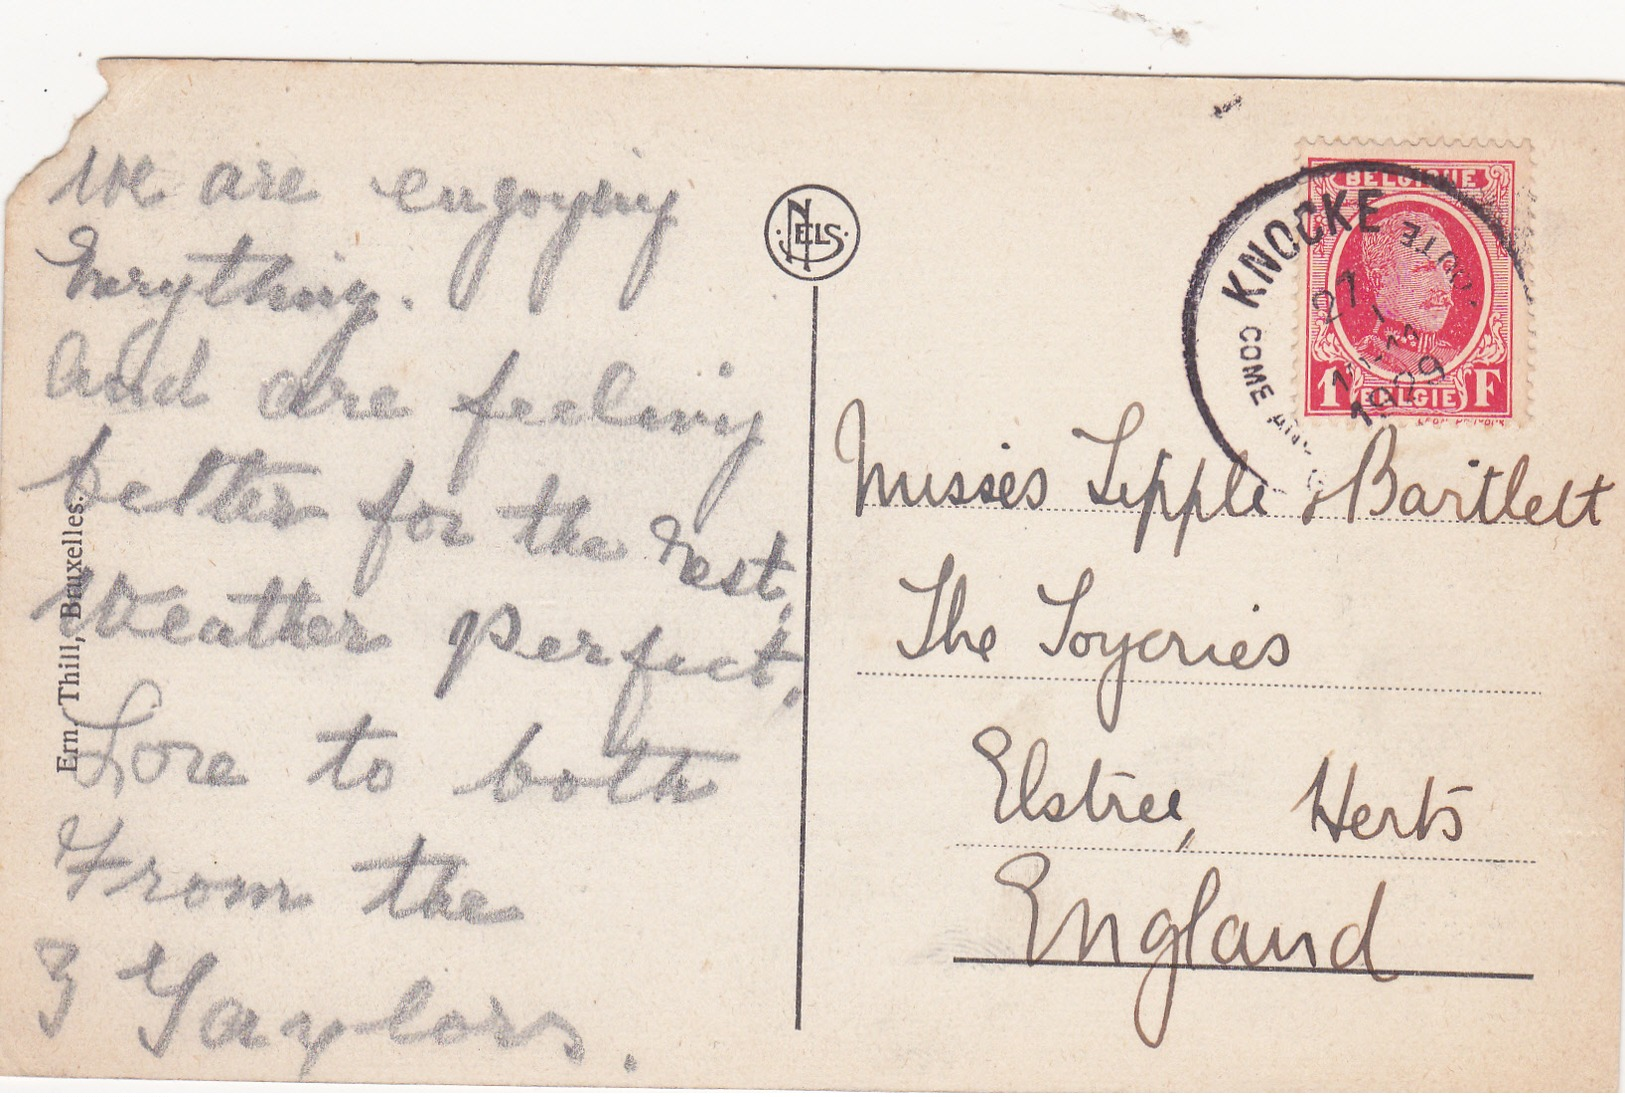 We are engoying
Everything.
And are feeling
better for the rest,
Weather perfect,
Love to both
From the
3 Taylors.
Ern. Thill, Bruxelles.
NELS
BELGIQUE
1 BELGIE F
KNOCKE
27
1929
Misses Lipple & Bartlett
The Toyeries
Elstree, Herts
England